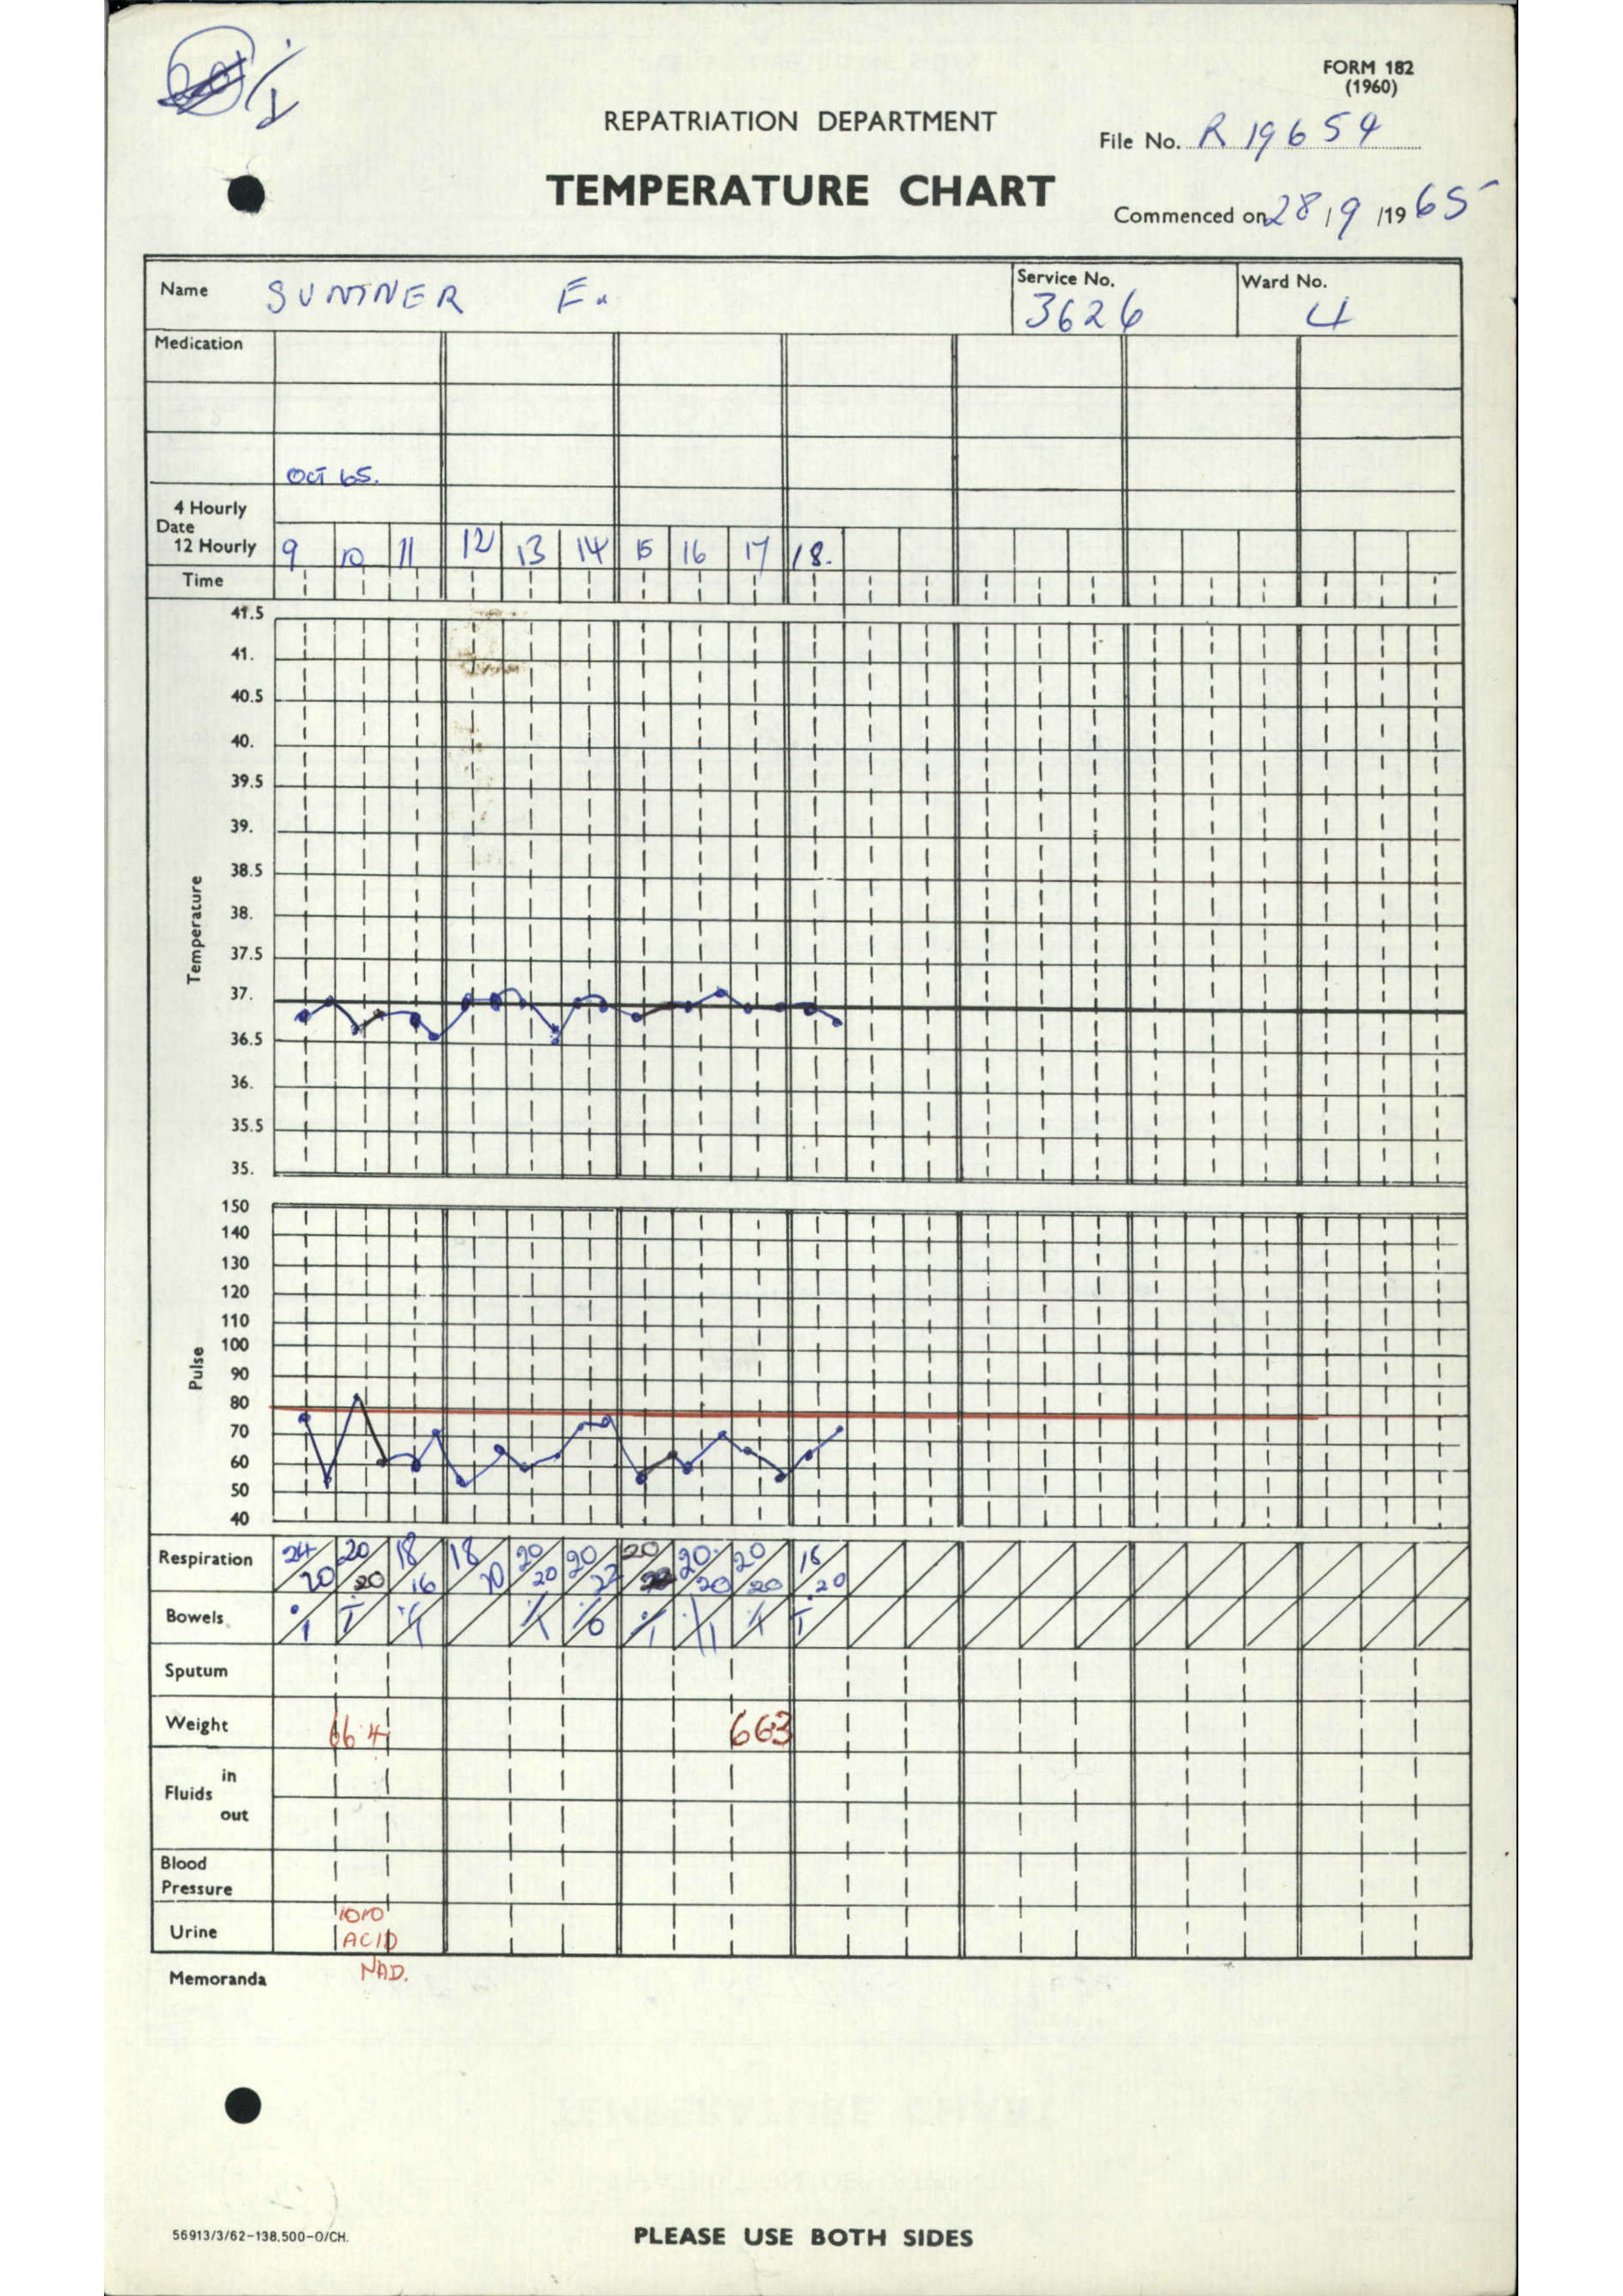 FORM 182
(1960)
REPATRIATION DEPARTMENT
File No. R 19654
TEMPERATURE CHART
Commenced on 28/9/1965
Name SUMNER F.
Service No. 3626
Ward No. 4
Medication
OCT 65.
4 Hourly
Date
12 Hourly 9 10 11 12 13 14 15 16 17 18.
Time
Temperature
41.5
41.
40.5
40.
39.5
39.
38.5
38.
37.5
37.
36.5
36.
35.5
35.
Pulse
150
140
130
120
110
100
90
80
70
60
50
40
Respiration 24/20 20/20 18/16 18/20 20/20 20/22 20/ 20/20 20/20 16/20
Bowels
Sputum
Weight 66.4 66.3
Fluids in
out
Blood
Pressure
Urine 1010
ACID
NAD.
Memoranda
56913/3/62-138.500-O/CH.
PLEASE USE BOTH SIDES